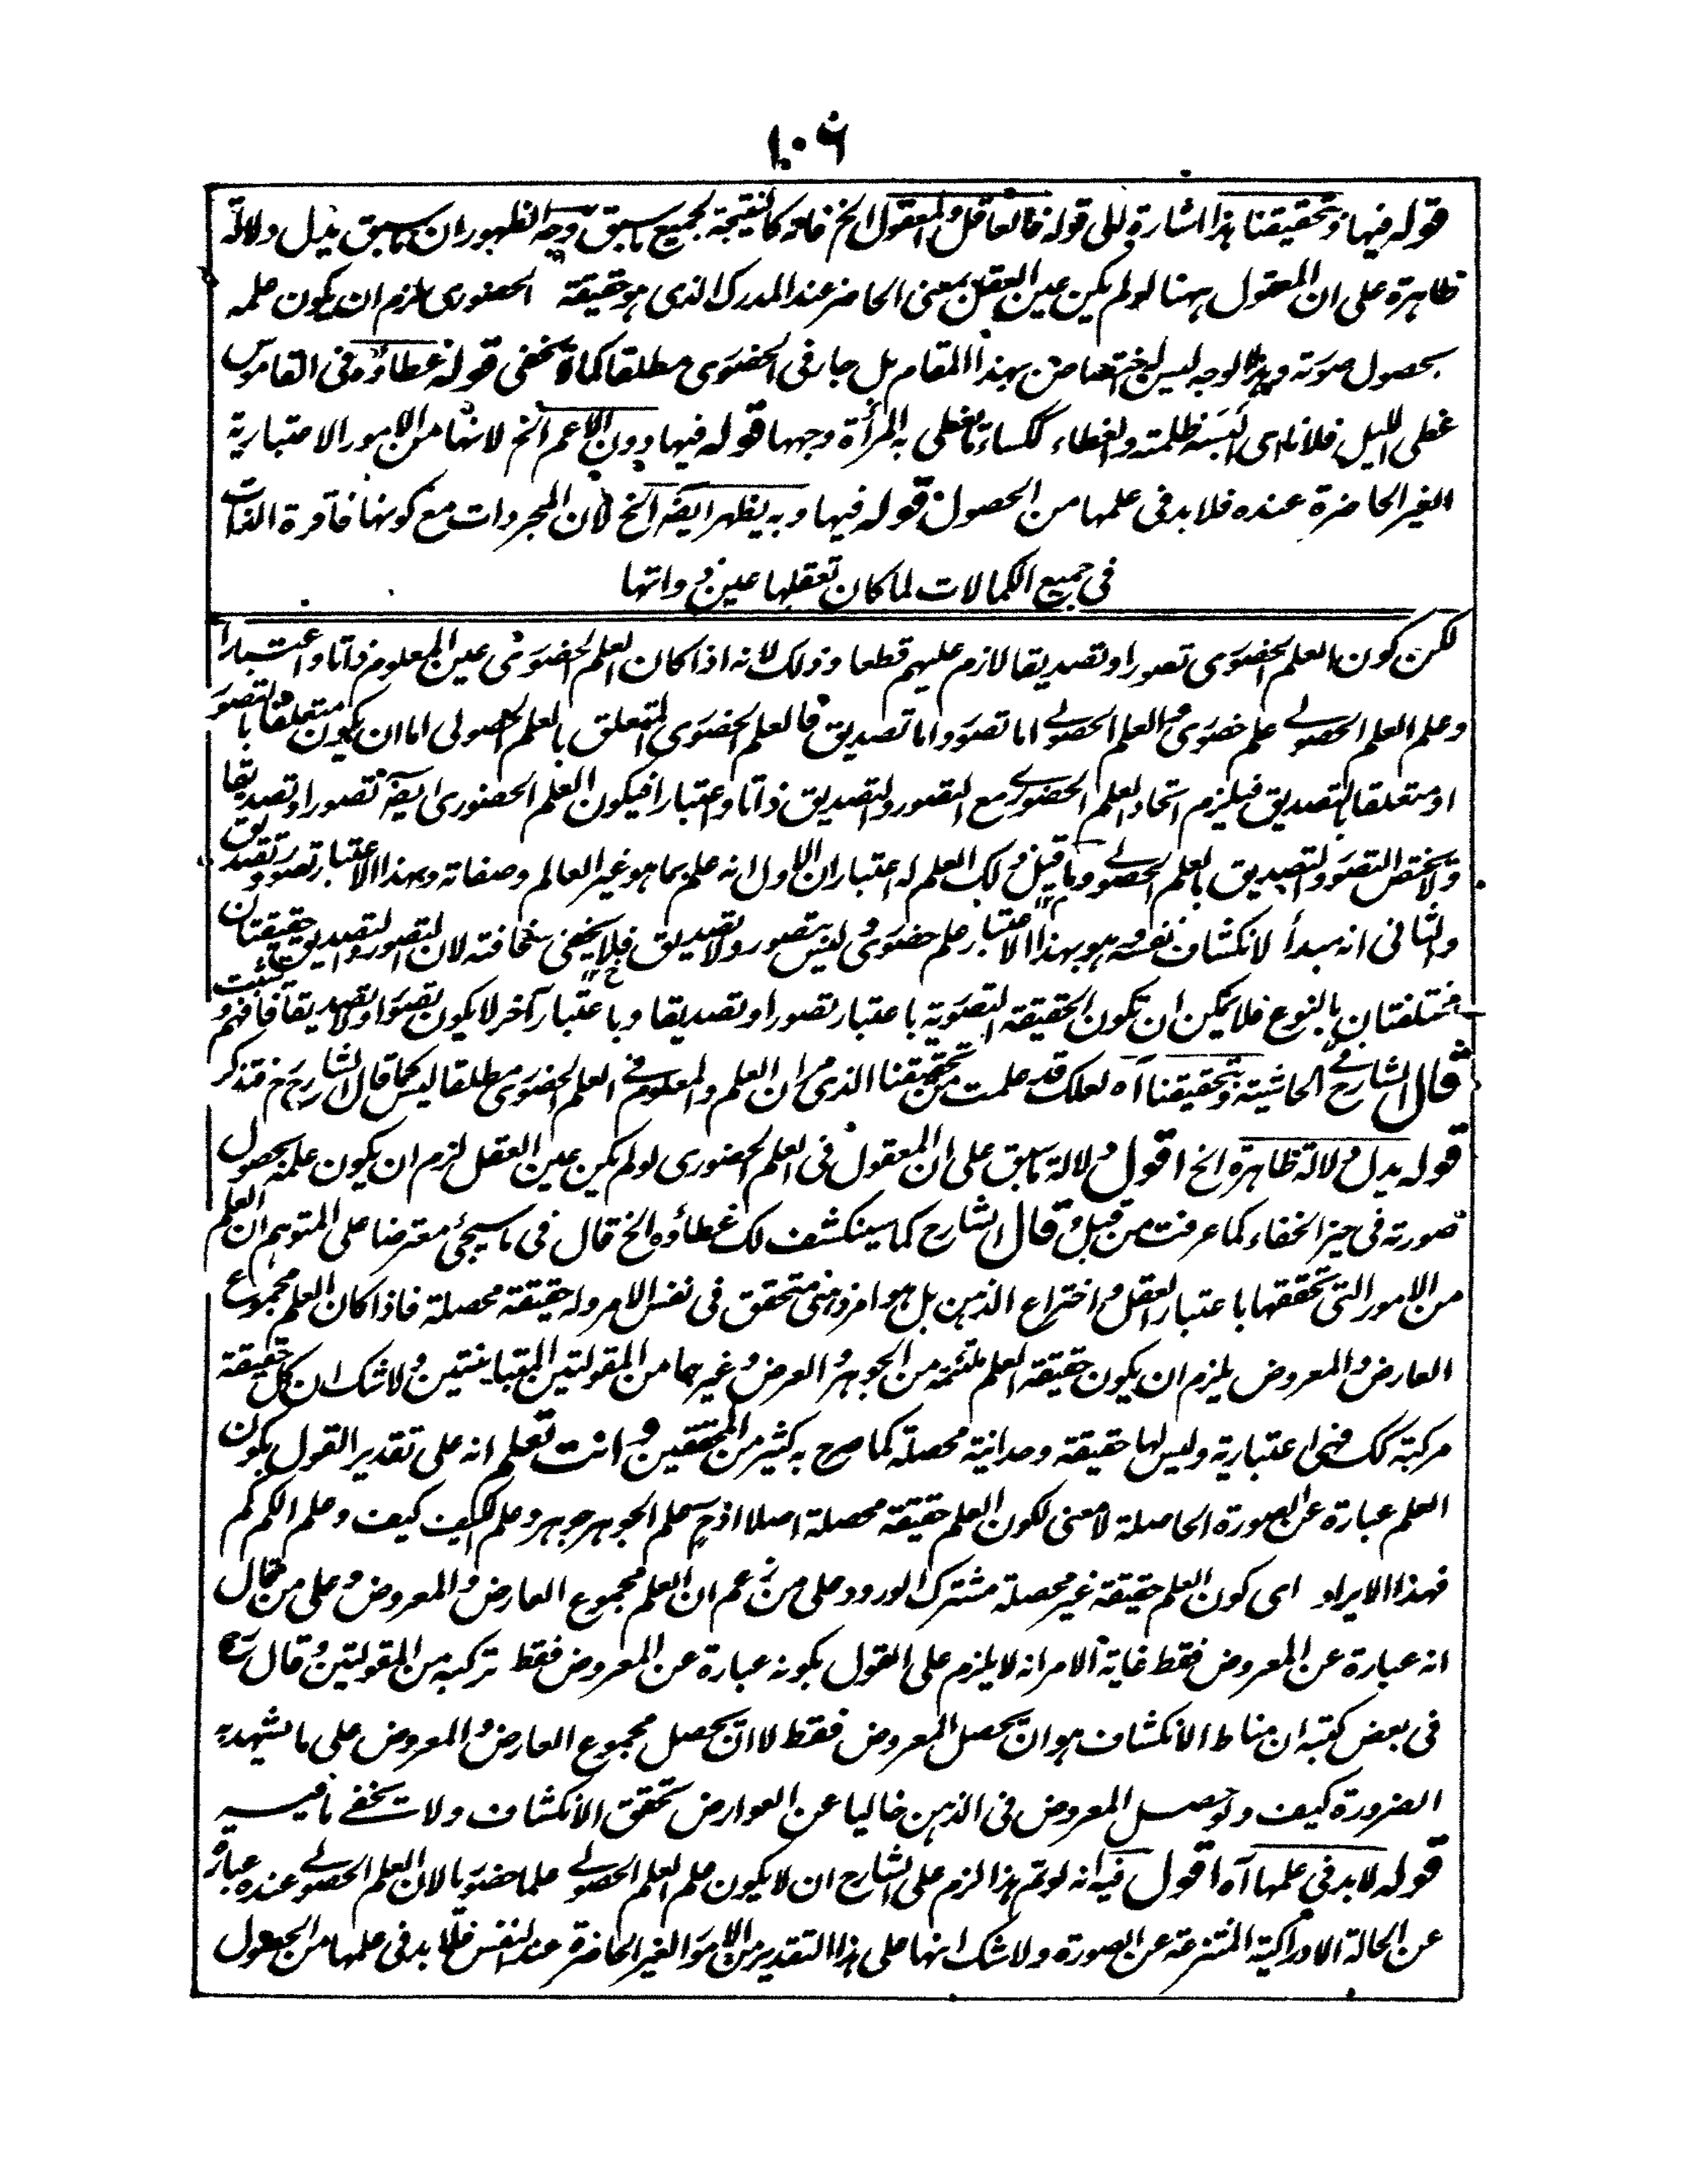 ۱۰۶
قوله فيها وتحقيقنا هذا اشارة الى قوله فالعاقل والمعقول الخ فانه كالنتيجة لجميع ما سبق وجه الظهور ان ما سبق يدل دلالة
ظاهرة على ان المعقول ههنا لو لم يكن عين العقل بمعنى الحاضر عند المدرك الذى هو حقيقة الحضورى يلزم ان يكون علمه
بحصول صورته وهذا الوجه ليس له اختصاص بهذا المقام بل جار فى الحضورى مطلقا كما لا يخفى قوله غطاؤه فى القاموس
غطى الليل فلانا اى البسه ظلمته والغطاء ككساء ما تغطى به المرأة وجهها قوله فيها دون الاعم الخ لانها من الامور الاعتبارية
الغير الحاضرة عنده فلا بد فى علمها من الحصول قوله فيها وبه يظهر ايضا الخ لان المجردات مع كونها فاقرة الذات
فى جميع الكمالات لما كان تعقلها عين ذواتها
لكن كون العلم الحضورى تصورا وتصديقا لازم عليهم قطعا وذلك لانه اذا كان العلم الحضورى عين المعلوم ذاتا واعتبارا
وعلم العلم الحصولى علم حضورى والعلم الحصولى اما تصور واما تصديق فالعلم الحضورى المتعلق بالعلم الحصولى اما ان يكون متعلقا بالتصور
او متعلقا بالتصديق فيلزم اتحاد العلم الحضورى مع التصور والتصديق ذاتا واعتبارا فيكون العلم الحضورى ايضا تصورا وتصديقا
ولا يختص التصور والتصديق بالعلم الحصولى وما قيل ذلك العلم له اعتباران الاول انه علم بما هو غير العالم وصفاته وبهذا الاعتبار تصور وتصديق
والثانى انه مبدأ لانكشاف نفسه وهو بهذا الاعتبار علم حضورى وليس بتصور ولا تصديق فلا يخفى سخافته لان التصور والتصديق حقيقتان
مختلفتان بالنوع فلا يمكن ان تكون الحقيقة التصورية باعتبار تصورا وتصديقا وباعتبار آخر لا يكون تصورا ولا تصديقا فافهم وتثبت
قال الشارح فى الحاشية وتحقيقنا آه لعلك قد علمت من تحقيقنا الذى مر ان العلم والمعلوم فى العلم الحضورى مطلقا ليس كما قال الشارح فتذكر
قوله يدل دلالة ظاهرة الخ اقول دلالة ما سبق على ان المعقول فى العلم الحضورى لو لم يكن عين العقل لزم ان يكون علمه بحصول
صورته فى حيز الخفاء كما عرفت من قبل قال الشارح كما سينكشف لك غطاؤه الخ قال فى ما سيجئ معترضا على المتوهم ان العلم
من الامور التى تحققها باعتبار العقل واختراع الذهن بل هو امر ذهنى متحقق فى نفس الامر وله حقيقة محصلة فاذا كان العلم مجموع
العارض والمعروض يلزم ان يكون حقيقة العلم ملتئمة من الجوهر والعرض وغيرهما من المقولتين المتباينتين ولا شك ان كل حقيقة
مركبة كك فهى اعتبارية وليس لها حقيقة وحدانية محصلة كما صرح به كثير من المحققين وانت تعلم انه على تقدير القول بكون
العلم عبارة عن الصورة الحاصلة لا معنى لكون العلم حقيقة محصلة اصلا اذ ح علم الجوهر جوهر وعلم الكيف كيف وعلم الكم كم
فهذا الايراد اى كون العلم حقيقة غير محصلة مشترك الورود على من زعم ان العلم مجموع العارض والمعروض وعلى من قال
انه عبارة عن المعروض فقط غاية الامر انه لا يلزم على القول بكونه عبارة عن المعروض فقط تركبه من المقولتين وقال
فى بعض كتبه ان مناط الانكشاف هو ان يحصل المعروض فقط لا ان يحصل مجموع العارض والمعروض على ما يشهد به
الضرورة كيف ولو حصل المعروض فى الذهن خاليا عن العوارض تحقق الانكشاف ولا يخفى ما فيه
قوله لا بد فى علمها آه اقول فيه انه لو تم هذا لزم على الشارح ان لا يكون علم العلم الحصولى علما حضوريا لان العلم الحصولى عنده عبارة
عن الحالة الادراكية المنتزعة عن الصورة ولا شك انها على هذا التقدير من الامور الغير الحاضرة عند النفس فلا بد فى علمها من الحصول